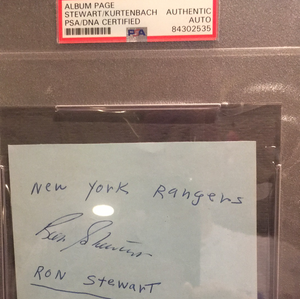 ALBUM PAGE
STEWART/KURTENBACH AUTHENTIC
PSA/DNA CERTIFIED AUTO
PSA 84302535
New York Rangers
Ron Stewart
RON Stewart